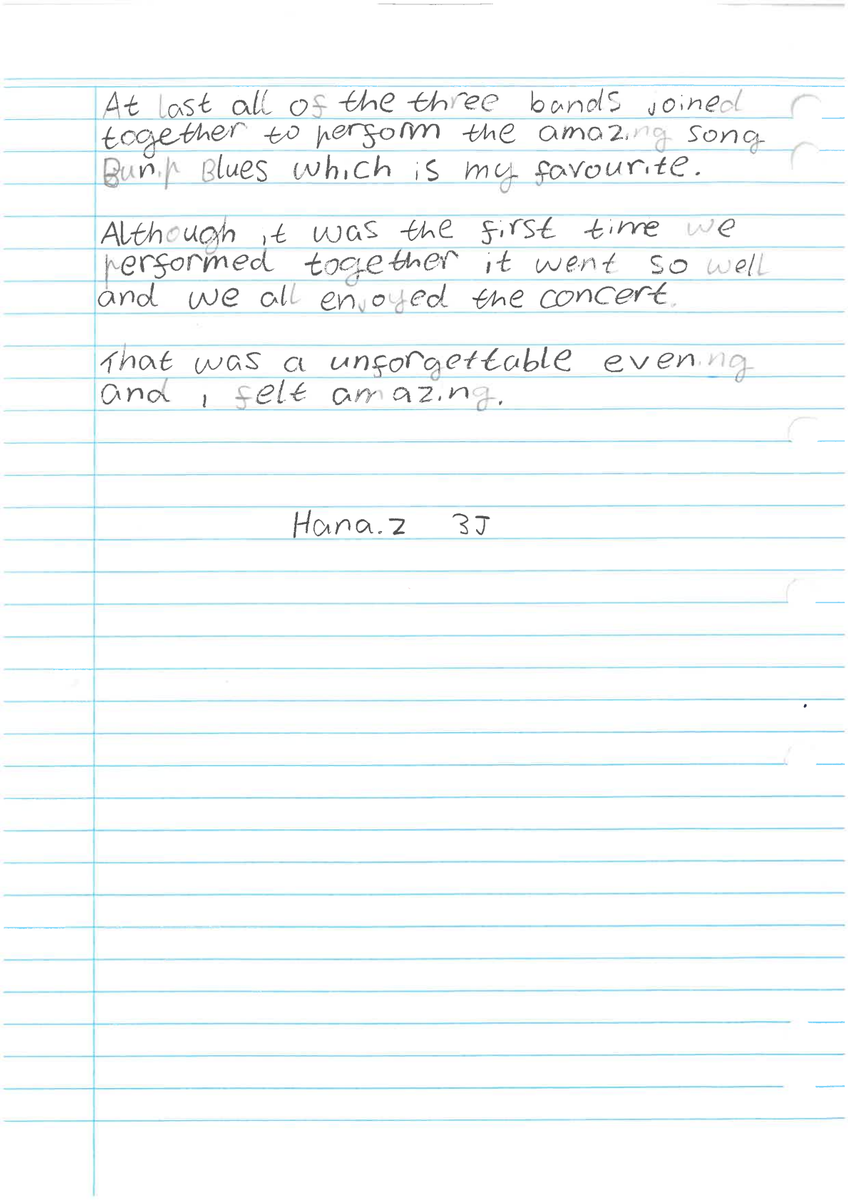 At last all of the three bands joined
together to perform the amazing song
Bunip Blues which is my favourite.
Although it was the first time we
performed together it went so well
and we all enjoyed the concert.
That was a unforgettable evening
and i felt amazing.
Hana.Z 3J